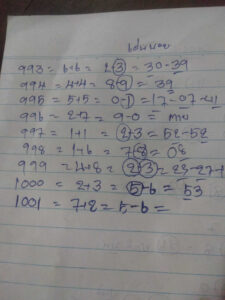 993 = 6+6 = 2-3 = 30-39
994 = 4+4 = 8-9 = 39
995 = 5+5 = 0-1 = 17-07-41
996 = 2+7 = 9-0 =
997 = 1+1 = 2+3 = 52-52
998 = 1+6 = 7-8 = 08
999 = 4+8 = 2-3 = 28-27-1
1000 = 2+3 = 5-6 = 53
1001 = 7+8 = 5-6 =